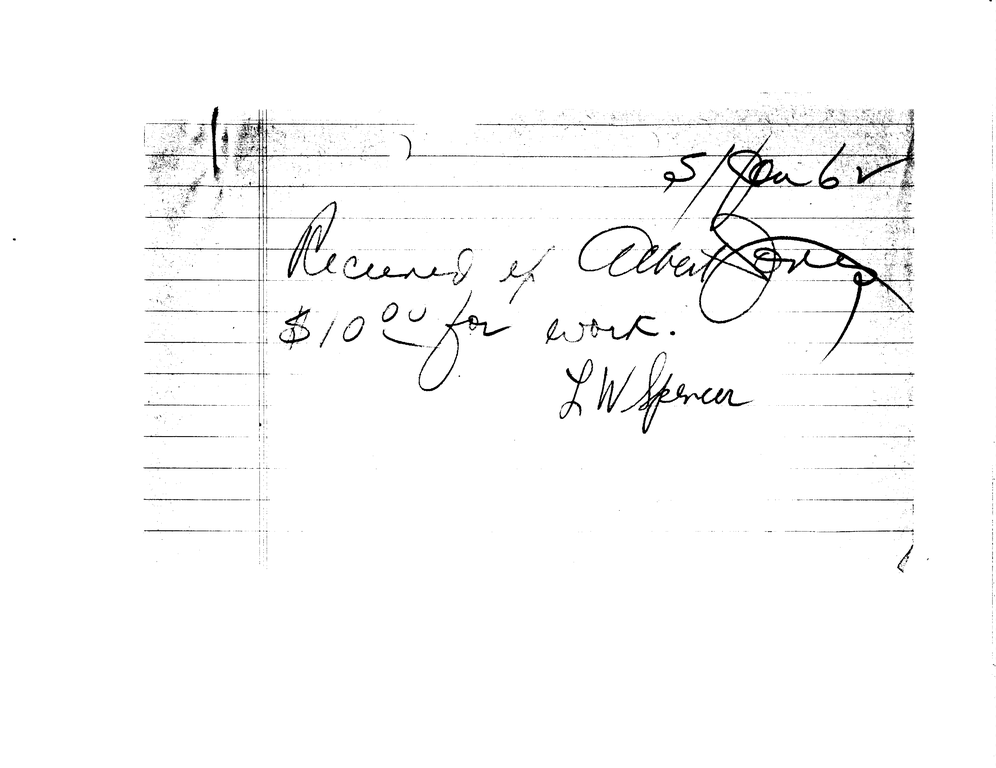 5/Jan 62
Received of Albert Jones
$10.00 for work.
L W Spencer